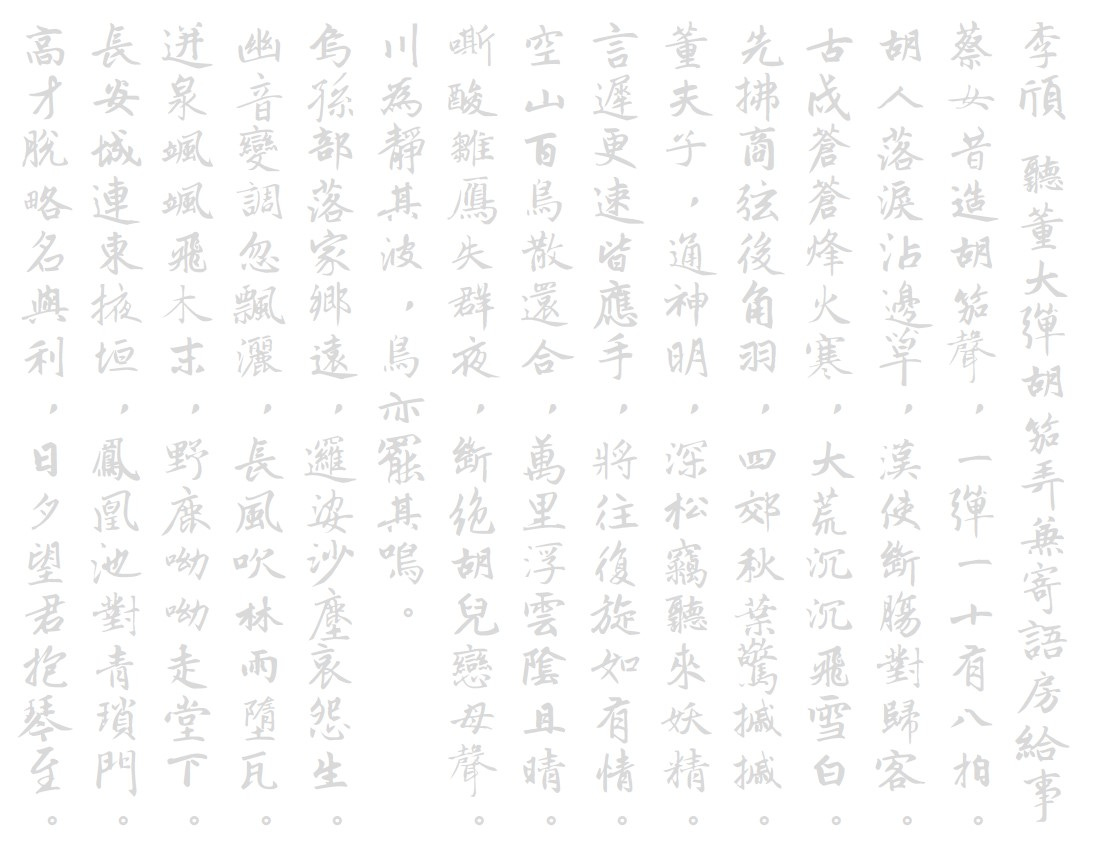 李頎　聽董大彈胡笳弄兼寄語房給事
蔡女昔造胡笳聲，一彈一十有八拍。
胡人落淚沾邊草，漢使斷腸對歸客。
古戍蒼蒼烽火寒，大荒沉沉飛雪白。
先拂商弦後角羽，四郊秋葉驚摵摵。
董夫子，通神明，深松竊聽來妖精。
言遲更速皆應手，將往復旋如有情。
空山百鳥散還合，萬里浮雲陰且晴。
嘶酸雛鴈失群夜，斷絕胡兒戀母聲。
川為靜其波，鳥亦罷其鳴。
烏孫部落家鄉遠，邏娑沙塵哀怨生。
幽音變調忽飄灑，長風吹林雨墮瓦。
迸泉颯颯飛木末，野鹿呦呦走堂下。
長安城連東掖垣，鳳凰池對青瑣門。
高才脫略名與利，日夕望君抱琴至。